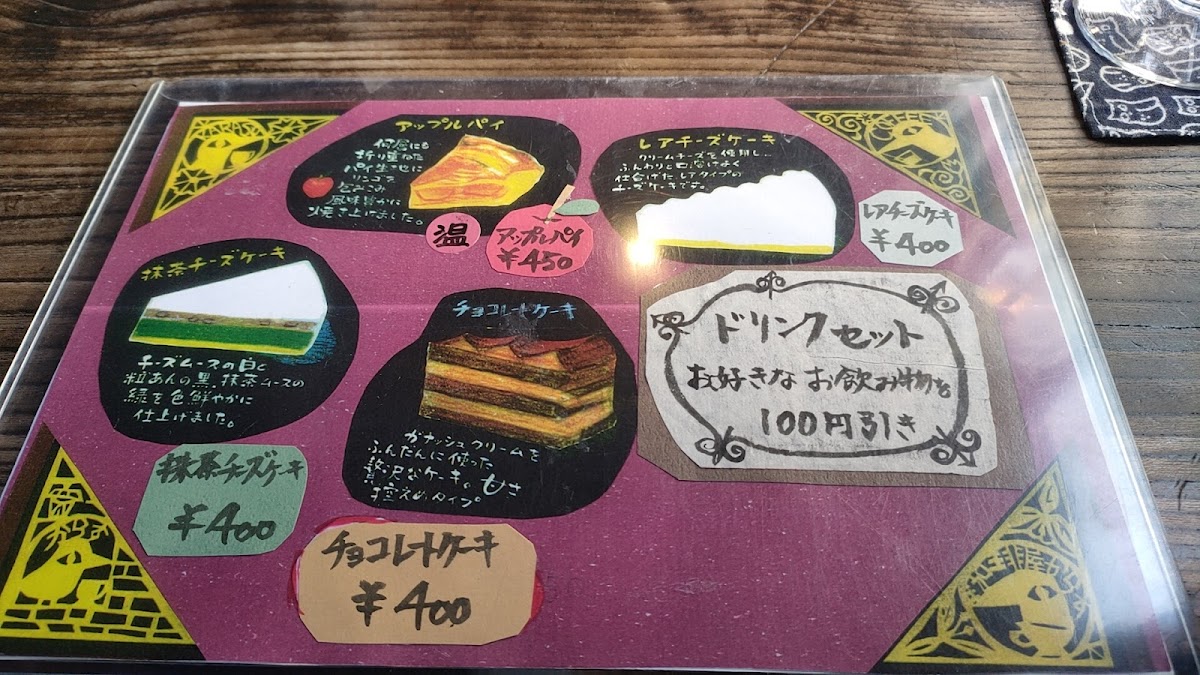 アップルパイ
何層にも
折り重ねた
パイ生地に
りんごを
包みこみ
風味豊かに
焼き上げました。
温
アップルパイ
¥450
レアチーズケーキ
クリームチーズを使用し、
ふんわりと口溶けよく
仕上げた、レアタイプの
チーズケーキです。
レアチーズケーキ
¥400
抹茶チーズケーキ
チーズムースの白と
粒あんの黒、抹茶ムースの
緑を色鮮やかに
仕上げました。
抹茶チーズケーキ
¥400
チョコレートケーキ
ガナッシュクリームを
ふんだんに使った
贅沢なケーキ。甘さ
控えめタイプ
チョコレートケーキ
¥400
ドリンクセット
お好きなお飲み物を
100円引き